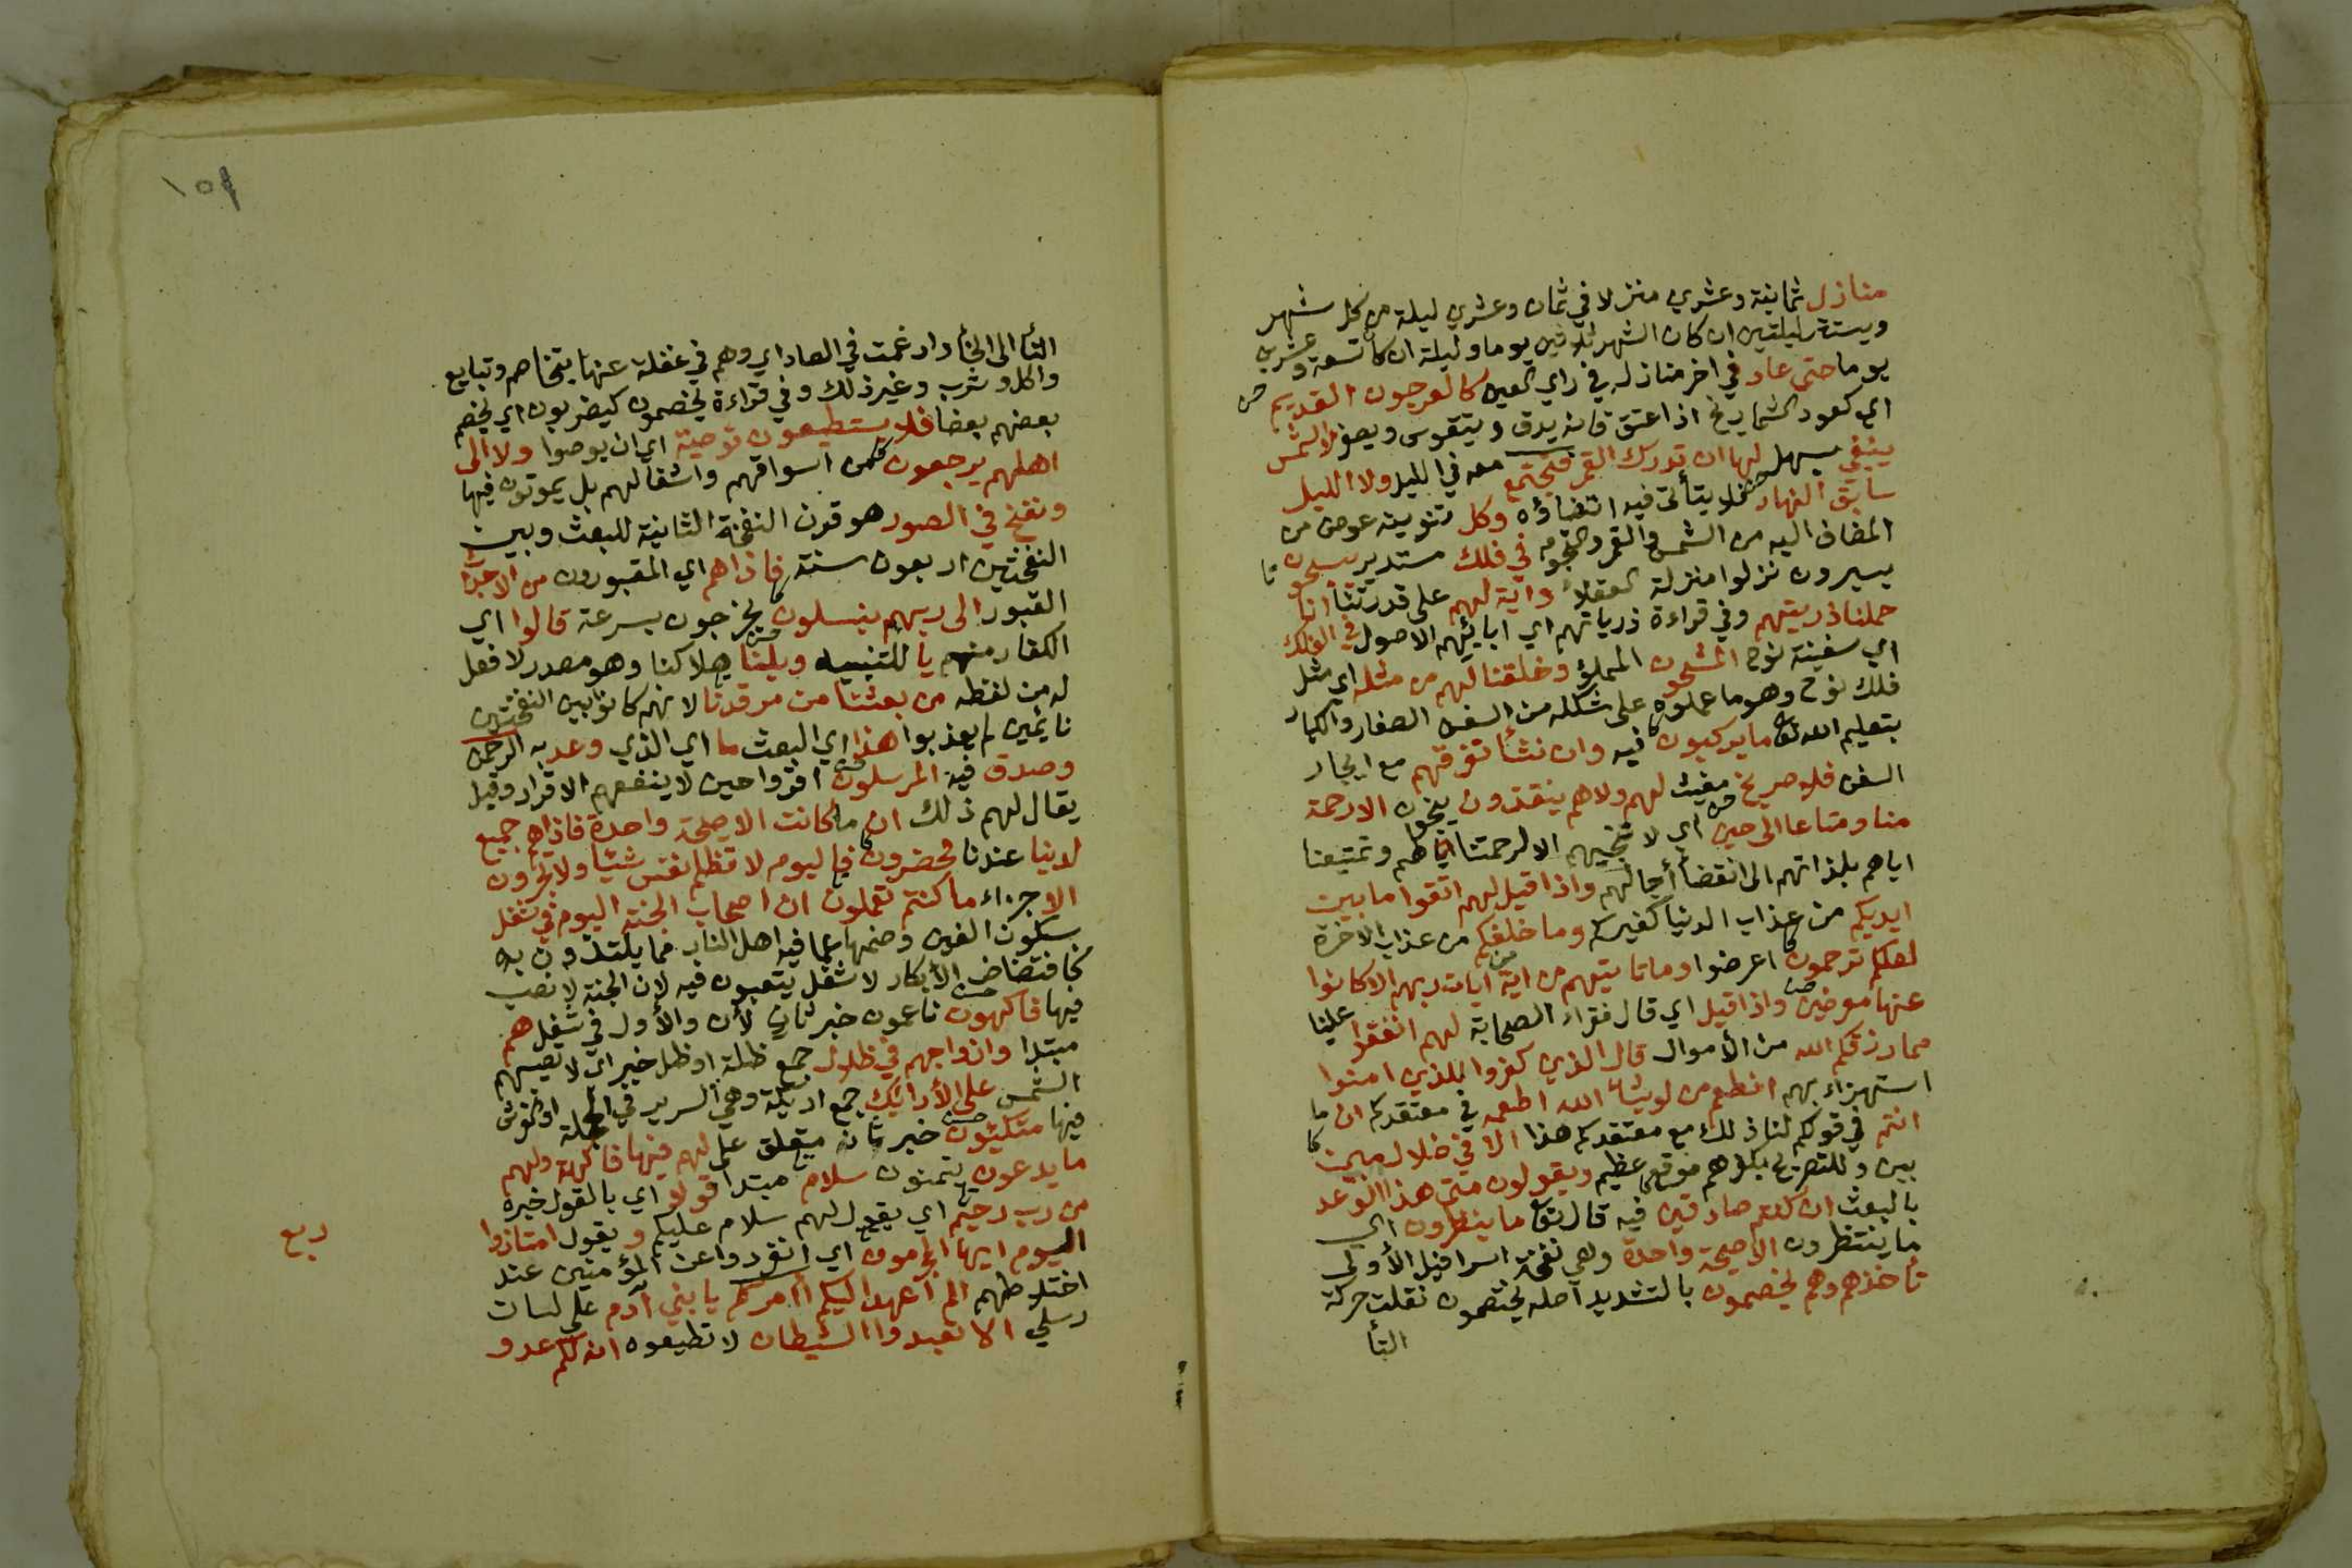 منازل ثمانية وعشرين منزلا في ثمان وعشرين ليلة من كل شهر
ويستتر ليلتين ان كان الشهر ثلاثين يوما وليلة ان كان تسعة وعشرين
يوما حتى عاد في اخر منازله في راي العين كالعرجون القديم
اي كعود الشماريخ اذا عتق فانه يدق ويتقوس ويصفر لا الشمس
ينبغي يسهل لها ان تدرك القمر فتجتمع معه في الليل ولا الليل
سابق النهار فلا يتأتى فيه انقضاؤه وكل تنوينه عوض من
المضاف اليه من الشمس والقمر والنجوم في فلك مستدير يسبحون
يسيرون نزلوا منزلة العقلا واية لهم على قدرتنا انا
حملنا ذريتهم وفي قراءة ذرياتهم اي ابائهم الاصول في الفلك
اي سفينة نوح المشحون المملوء وخلقنا لهم من مثله اي مثل
فلك نوح وهو ما عملوه على شكله من السفن الصغار والكبار
بتعليم الله تعا ما يركبون فيه وان نشأ نغرقهم مع ايجاد
السفن فلا صريخ مغيث لهم ولا هم ينقذون ينجون الا رحمة
منا ومتاعا الى حين اي لا ننجيهم الا لرحمتنا اياهم وتمتيعنا
اياهم بلذاتهم الى انقضا أجالهم واذا قيل لهم اتقوا ما بين
ايديكم من عذاب الدنيا كغيركم وما خلفكم من عذاب الاخرة
لعلكم ترحمون اعرضوا وما تاتيهم من اية من ايات ربهم الا كانوا
عنها معرضين واذا قيل اي قال فقراء الصحابة لهم انفقوا علينا
مما رزقكم الله من الأموال قال الذين كفروا للذين امنوا
استهزاء بهم انطعم من لو يشاء الله اطعمه في معتقدكم ان ما
انتم في قولكم لنا ذلك مع معتقدكم هذا الا في ضلال مبين
بين وللتصريح بكفرهم موقع عظيم ويقولون متى هذا الوعد
بالبعث ان كنتم صادقين فيه قال تعا ما ينظرون اي
ما ينتظرون الا صيحة واحدة وهي نفخة اسرافيل الأولى
تأخذهم وهم يخصمون بالتشديد اصله يختصمون نقلت حركة
التأ
١٥٩
التأ الى الخأ وادغمت في الصاد اي وهم في غفلة عنها بتخاصم وتبايع
واكل وشرب وغير ذلك وفي قراءة يخصمون كيضربون اي يخصم
بعضهم بعضا فلا يستطيعون توصية اي ان يوصوا ولا الى
اهلهم يرجعون من اسواقهم واشغالهم بل يموتون فيها
ونفخ في الصور هو قرن النفخة الثانية للبعث وبين
النفختين اربعون سنة فاذا هم اي المقبورون من الاجداث
القبور الى ربهم ينسلون يخرجون بسرعة قالوا اي
الكفار منهم يا للتنبيه ويلنا هلاكنا وهو مصدر لا فعل
له من لفظه من بعثنا من مرقدنا لانهم كانوا بين النفختين
نايمين لم يعذبوا هذا اي البعث ما اي الذي وعد به الرحمن
وصدق فيه المرسلون اقروا حين لا ينفعهم الاقرار وقيل
يقال لهم ذلك ان ما كانت الا صيحة واحدة فاذا هم جميع
لدينا عندنا محضرون فاليوم لا تظلم نفس شيئا ولا تجزون
الا جزاء ما كنتم تعملون ان اصحاب الجنة اليوم في شغل
بسكون الغين وضمها عما فيه اهل النار مما يلتذون به
كافتضاض الأبكار لا شغل يتعبون فيه لان الجنة لا نصب
فيها فاكهون ناعمون خبر ثان لأن والأول في شغل هم
مبتدا وازواجهم في ظلال جمع ظلة او ظل خبر اي لا تصيبهم
الشمس على الأرائك جمع اريكة وهي السرير في الحجلة او الفرش
فيها متكئون خبر ثان متعلق على لهم فيها فاكهة ولهم
ما يدعون يتمنون سلام مبتدا قولا اي بالقول خبره
من رب رحيم اي يقول لهم سلام عليكم ويقول امتازوا
اليوم ايها المجرمون اي انفردوا عن المؤمنين عند
اختلاطهم الم أعهد اليكم أأمركم يا بني آدم على لسان
رسلي الا تعبدوا الشيطان لا تطيعوه انه لكم عدو
ربع